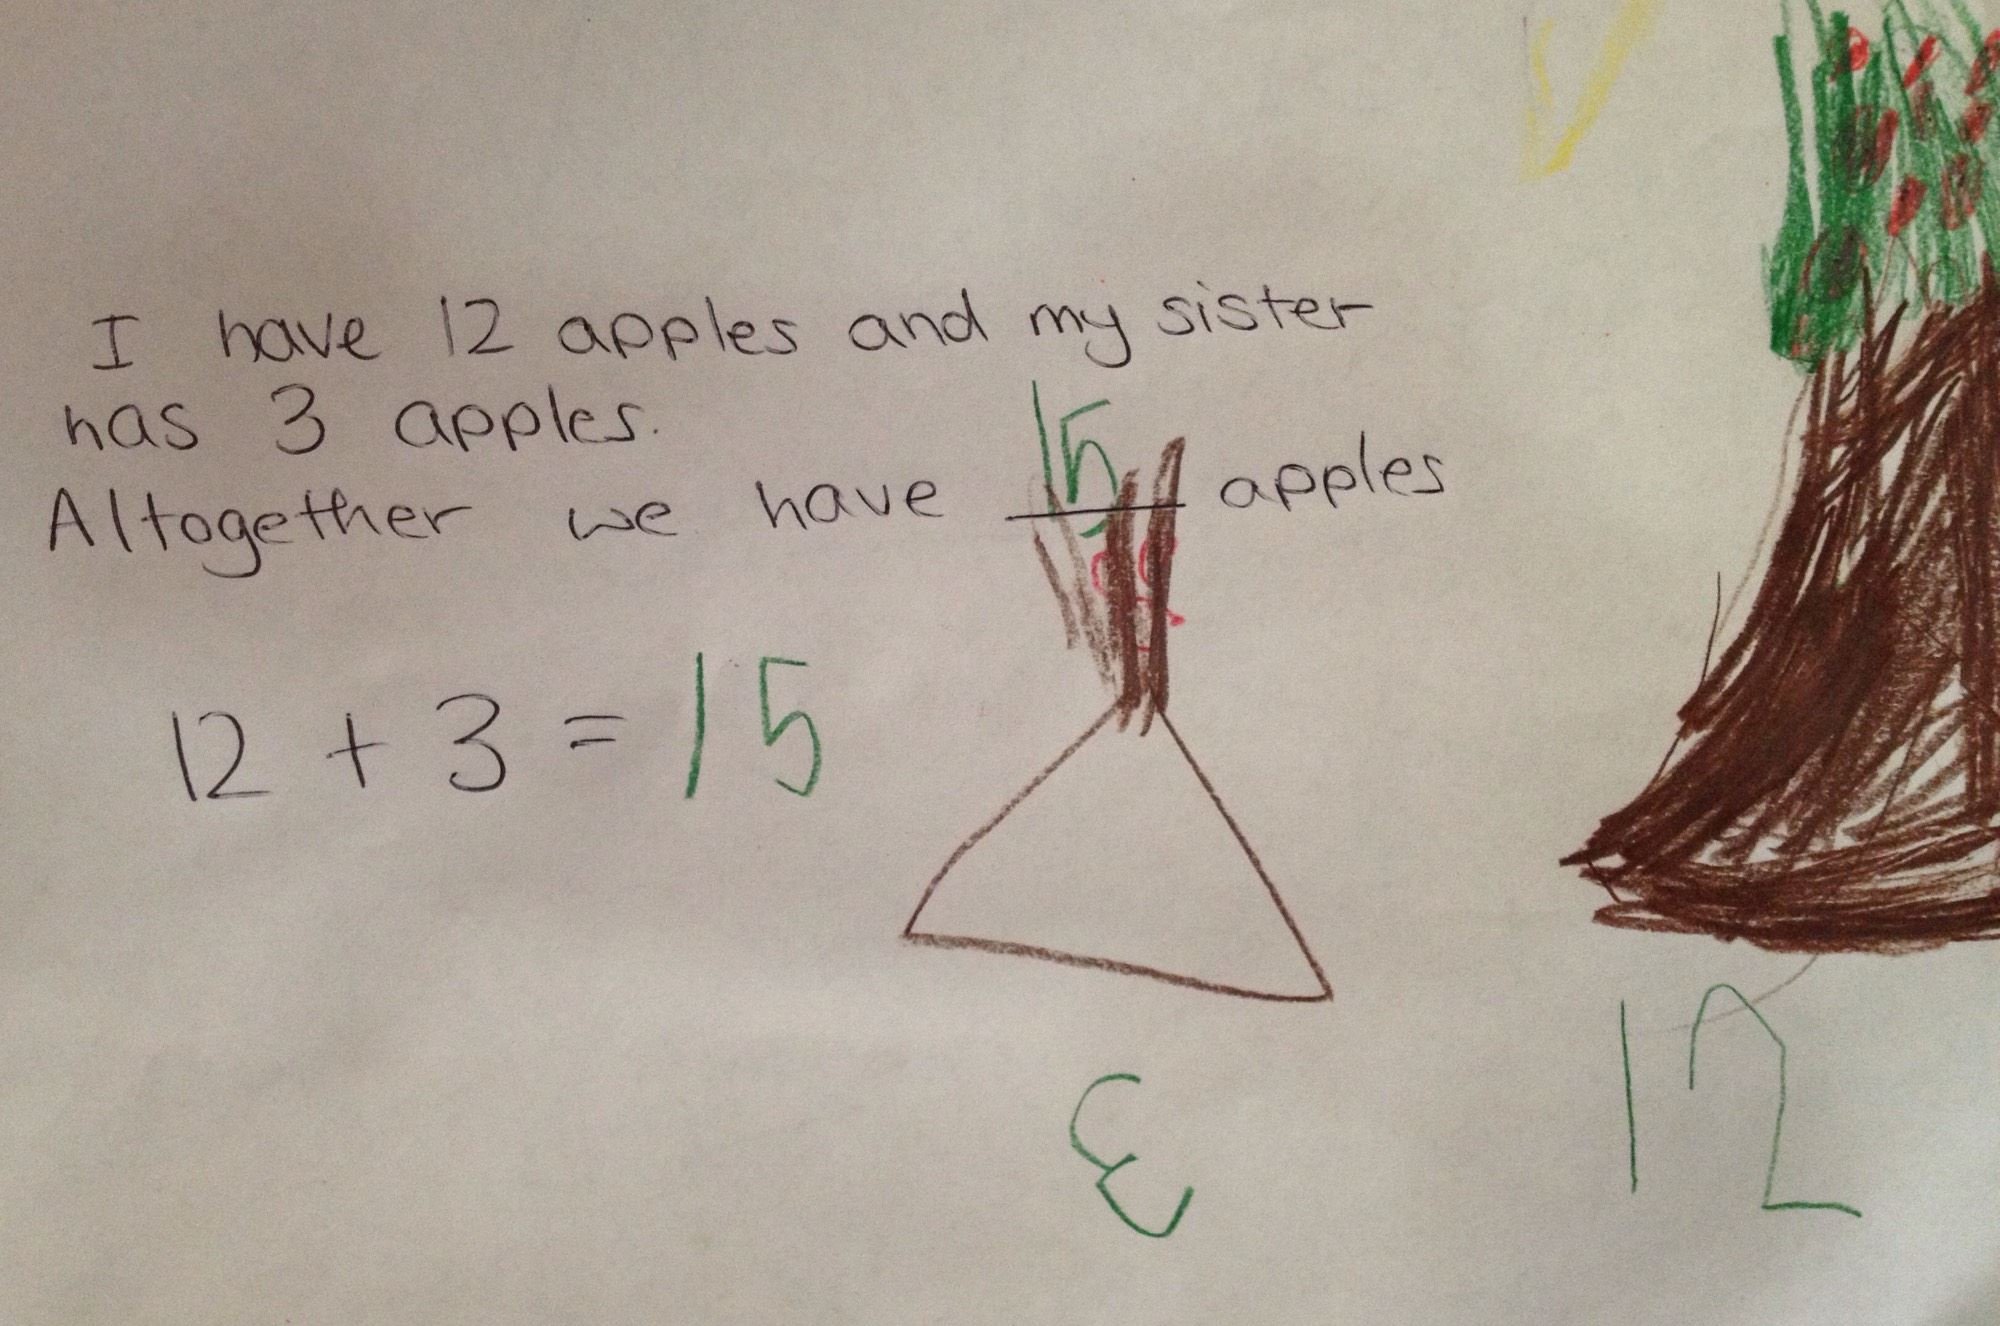 I have 12 apples and my sister
has 3 apples.
Altogether we have 15 apples
12 + 3 = 15
3
12